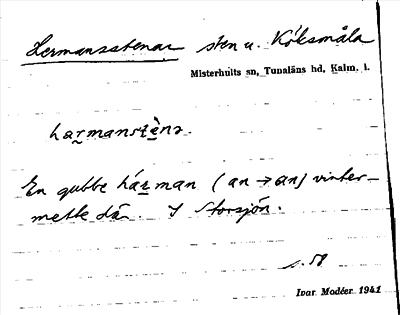 Hermansstenar sten u. Köksmåla
Misterhults sn, Tunaläns hd, Kalm. l.
harmanstèna.
En gubbe hárman (an → an) vinter-
metle där. I Storsjön.
s. 58
Ivar Modéer 1941